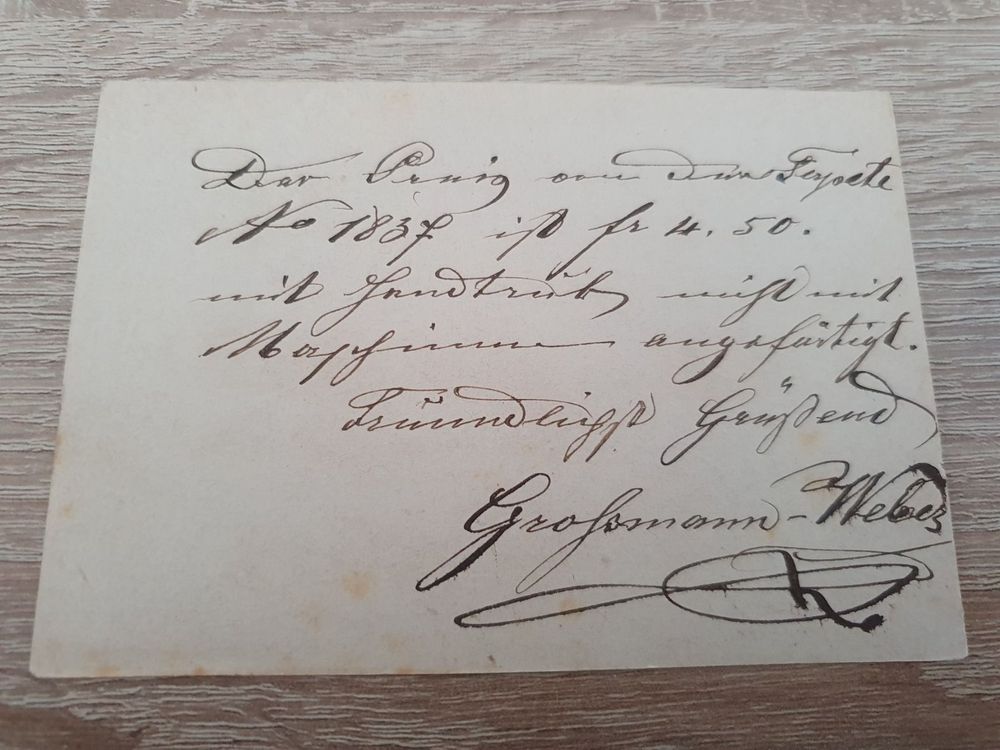 Der Preis von dem Fayote
No 1837 ist fr 4. 50.
mit Handtrüb nicht mit
Maschinnen angefärtigt.
Freündlichst Grüßend
Grossmann-Weber